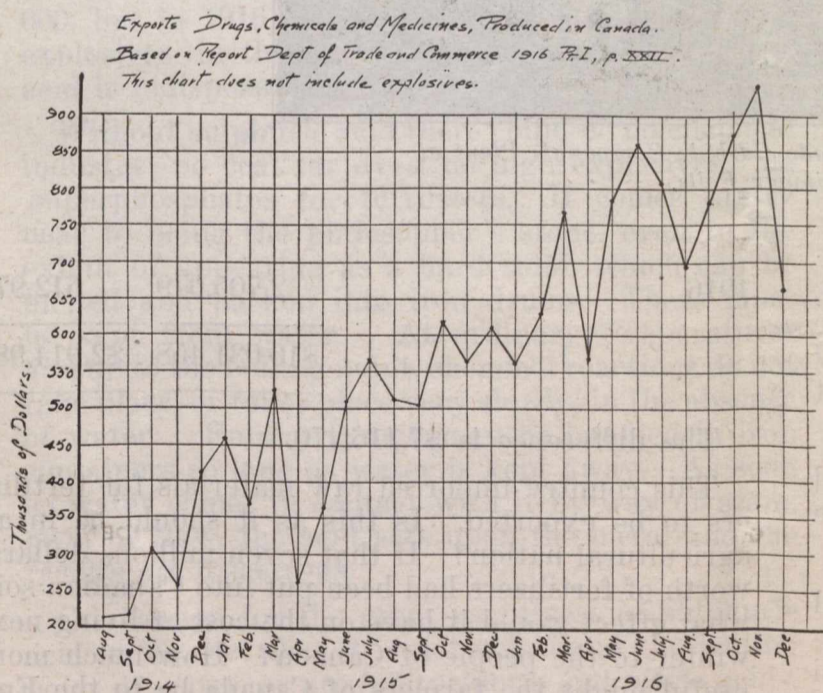 Exports Drugs, Chemicals and Medicines, Produced in Canada.
Based on Report Dept of Trade and Commerce 1916 Pt. I, p. XXII.
This chart does not include explosives.
Thousands of Dollars.
900
850
800
750
700
650
600
550
500
450
400
350
300
250
200
Aug Sept Oct Nov Dec Jan Feb. Mar Apr. May June July Aug Sept. Oct Nov. Dec Jan Feb. Mar. Apr May June July. Aug. Sept. Oct. Nov. Dec
1914 1915 1916